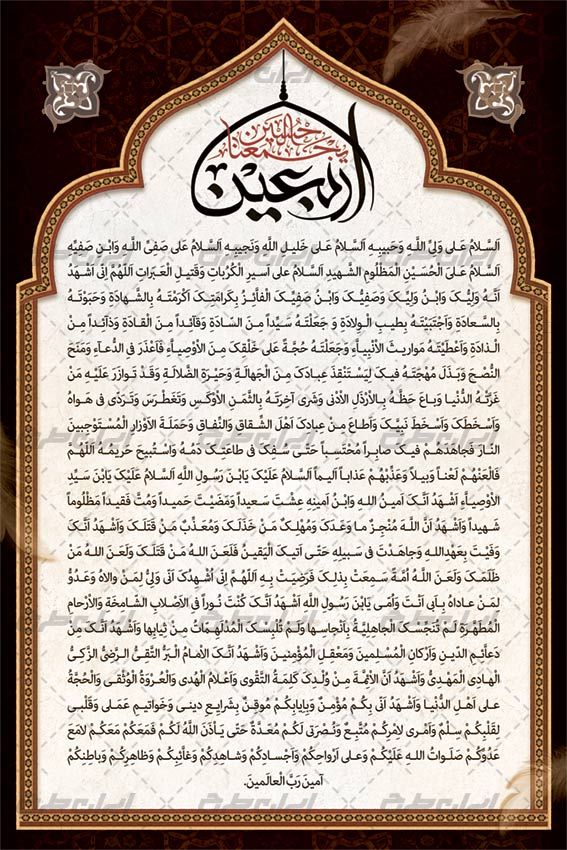 حسین
یجمعنا
اربعین
اَلسَّلامُ عَلى وَلِیِّ اللَّهِ وَحَبیبِهِ اَلسَّلامُ عَلى خَلیلِ اللَّهِ وَنَجیبِهِ اَلسَّلامُ عَلى صَفِیِّ اللَّهِ وَابْنِ صَفِیِّهِ
اَلسَّلامُ عَلَى الْحُسَیْنِ الْمَظْلُومِ الشَّهیدِ اَلسَّلامُ على اَسیرِ الْکُرُباتِ وَقَتیلِ الْعَبَراتِ اَللّهُمَّ اِنّى اَشْهَدُ
اَنَّهُ وَلِیُّکَ وَابْنُ وَلِیِّکَ وَصَفِیُّکَ وَابْنُ صَفِیِّکَ الْفاَّئِزُ بِکَرامَتِکَ اَکْرَمْتَهُ بِالشَّهادَةِ وَحَبَوْتَهُ
بِالسَّعادَةِ وَاَجْتَبَیْتَهُ بِطیبِ الْوِلادَةِ وَ جَعَلْتَهُ سَیِّداً مِنَ السّادَةِ وَقآئِداً مِنَ الْقادَةِ وَذآئِداً مِنْ
الْذادَةِ وَاَعْطَیْتَهُ مَواریثَ الاَنْبِیاَّءِ وَجَعَلْتَهُ حُجَّةً عَلى خَلْقِکَ مِنَ الاَوْصِیاَّءِ فَاَعْذَرَ فىِ الدُّعآءِ وَمَنَحَ
النُّصْحَ وَبَذَلَ مُهْجَتَهُ فیکَ لِیَسْتَنْقِذَ عِبادَکَ مِنَ الْجَهالَةِ وَحَیْرَةِ الضَّلالَةِ وَقَدْ تَوازَرَ عَلَیْهِ مَنْ
غَرَّتْهُ الدُّنْیا وَباعَ حَظَّهُ بِالاَرْذَلِ الاَدْنى وَشَرى آخِرَتَهُ بِالثَّمَنِ الاَوْکَسِ وَتَغَطْرَسَ وَتَرَدّى فى هَواهُ
وَاَسْخَطَکَ وَاَسْخَطَ نَبِیَّکَ وَاَطاعَ مِنْ عِبادِکَ اَهْلَ الشِّقاقِ وَالنِّفاقِ وَحَمَلَةَ الاَوْزارِ الْمُسْتَوْجِبینَ
النّارَ فَجاهَدَهُمْ فیکَ صابِراً مُحْتَسِباً حَتّى سُفِکَ فى طاعَتِکَ دَمُهُ وَاسْتُبیحَ حَریمُهُ اَللّهُمَّ
فَالْعَنْهُمْ لَعْناً وَبیلاً وَعَذِّبْهُمْ عَذاباً اَلیماً اَلسَّلامُ عَلَیْکَ یَابْنَ رَسُولِ اللَّهِ اَلسَّلامُ عَلَیْکَ یَابْنَ سَیِّدِ
الاَوْصِیاَّءِ اَشْهَدُ اَنَّکَ اَمینُ اللهِ وَابْنُ اَمینِهِ عِشْتَ سَعیداً وَمَضَیْتَ حَمیداً وَمُتَّ فَقیداً مَظْلُوماً
شَهیداً وَاَشْهَدُ اَنَّ اللَّهَ مُنْجِزٌ ما وَعَدَکَ وَمُهْلِکٌ مَنْ خَذَلَکَ وَمُعَذِّبٌ مَنْ قَتَلَکَ وَاَشْهَدُ اَنَّکَ
وَفَیْتَ بِعَهْدِاللهِ وَجاهَدْتَ فى سَبیلِهِ حَتّى اَتیکَ الْیَقینُ فَلَعَنَ اللهُ مَنْ قَتَلَکَ وَلَعَنَ اللهُ مَنْ
ظَلَمَکَ وَلَعَنَ اللَّهُ اُمَّةً سَمِعَتْ بِذلِکَ فَرَضِیَتْ بِهِ اَللّهُمَّ اِنّى اُشْهِدُکَ اَنّى وَلِىٌّ لِمَنْ والاهُ وَعَدُوٌّ
لِمَنْ عاداهُ بِاَبى اَنْتَ وَاُمّى یَابْنَ رَسُولِ اللَّهِ اَشْهَدُ اَنَّکَ کُنْتَ نُوراً فىِ الاَصْلابِ الشّامِخَةِ وَالاَرْحامِ
الْمُطَهَّرَةِ لَمْ تُنَجِّسْکَ الْجاهِلِیَّةُ بِاَنْجاسِها وَلَمْ تُلْبِسْکَ الْمُدْلَهِمّاتُ مِنْ ثِیابِها وَاَشْهَدُ اَنَّکَ مِنْ
دَعاَّئِمِ الدّینِ وَاَرْکانِ الْمُسْلِمینَ وَمَعْقِلِ الْمُؤْمِنینَ وَاَشْهَدُ اَنَّکَ الاِمامُ الْبَرُّ التَّقِىُّ الرَّضِىُّ الزَّکِىُّ
الْهادِى الْمَهْدِىُّ وَاَشْهَدُ اَنَّ الاَئِمَّةَ مِنْ وُلْدِکَ کَلِمَةُ التَّقْوى وَاَعْلامُ الْهُدى وَالْعُرْوَةُ الْوُثْقى وَالْحُجَّةُ
على اَهْلِ الدُّنْیا وَاَشْهَدُ اَنّى بِکُمْ مُؤْمِنٌ وَبِاِیابِکُمْ مُوقِنٌ بِشَرایِعِ دینى وَخَواتیمِ عَمَلى وَقَلْبى
لِقَلْبِکُمْ سِلْمٌ وَاَمْرى لاِمْرِکُمْ مُتَّبِعٌ وَنُصْرَتى لَکُمْ مُعَدَّةٌ حَتّى یَاْذَنَ اللَّهُ لَکُمْ فَمَعَکُمْ مَعَکُمْ لامَعَ
عَدُوِّکُمْ صَلَواتُ اللهِ عَلَیْکُمْ وَعلى اَرْواحِکُمْ وَاَجْسادِکُمْ وَشاهِدِکُمْ وَغاَّئِبِکُمْ وَظاهِرِکُمْ وَباطِنِکُمْ
آمینَ رَبَّ الْعالَمینَ.